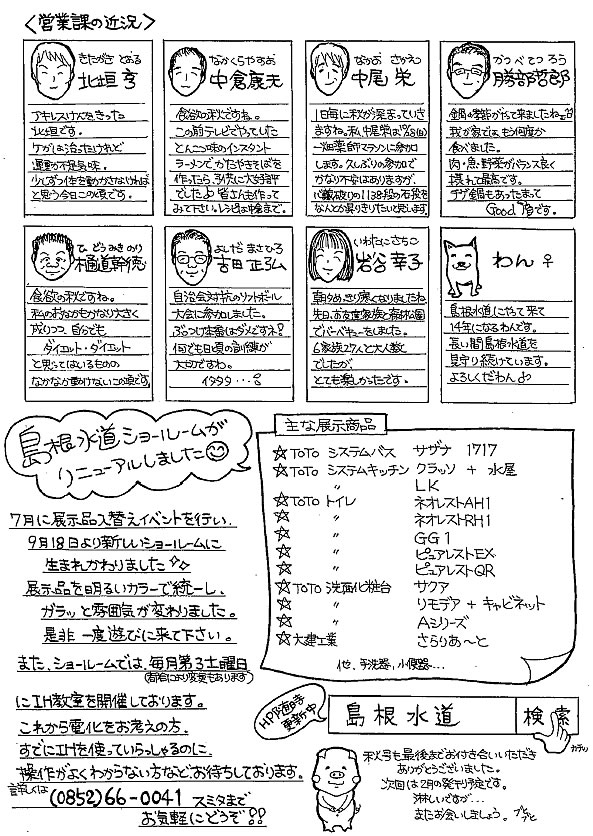 〈営業課の近況〉
きたがき とおる
北垣 亨
アキレスけんをきった
北垣です。
ケガは治ったけれど
運動不足気味。
少しずつ体を動かさなければ
と思う今日この頃です。
なかくらやすお
中倉康夫
食欲の秋ですね。
この前テレビでやっていた
とんこつ味のインスタント
ラーメンでかたやきそばを
作ったら、子供に大好評
でした♪ 皆さんも作って
みて下さい。レシピは中倉まで。
なかお さかえ
中尾 栄
1日毎に秋が深まっていき
ますね。私、中尾栄は
一畑薬師マラソンに参加
します。久しぶりの参加で
かなり不安はありますが、
1138段の石段を
なんとか昇りきりたいと思います。
かつべてつろう
勝部哲郎
鍋の季節がやって来ましたね。
我が家では、もう何度か
食べました。
肉・魚・野菜がバランス良く
摂れて最高です。
チゲ鍋もあったまって
Good 鍋です。
ひどうみきのり
樋道幹徳
食欲の秋ですね。
私のおなかもかなり大きく
成りつつ、自らでも
ダイエット・ダイエット
と思ってはいるものの
なかなか動けないこの頃です。
よしだ まさひろ
吉田 正弘
自治会対抗のソフトボール
大会に参加しました。
ぶっつけ本番はダメですネ!
何でも日頃の訓練が
大切ですね。
イタタタ…
いわたにさちこ
岩谷 幸子
朝夕めっきり寒くなりましたね
先日、お友達家族と森林公園
でバーベキューをしました。
6家族27人と大人数
でしたが、
とても楽しかったです。
わん ♀
島根水道にやって来て
14年になるわんです。
長い間島根水道を
見守り続けています。
よろしくだわん♪
島根水道ショールームが
リニューアルしました
7月に展示品入替えイベントを行い、
9月18日より新しいショールームに
生まれかわりました
展示品を明るいカラーで統一し、
ガラッと雰囲気が変わりました。
是非一度遊びに来て下さい。
また、ショールームでは、毎月第3土曜日
(都合により変更もあります)
にIH教室を開催しております。
これから電化をお考えの方、
すでにIHを使っていらっしゃるのに、
操作がよくわからない方など、お待ちしております。
詳しくは (0852)66-0041 スミタまで
お気軽にどうぞ!!
主な展示商品
☆TOTO システムバス サザナ 1717
☆TOTO システムキッチン クラッソ + 水屋
〃 LK
☆TOTO トイレ ネオレストAH1
☆ 〃 ネオレストRH1
☆ 〃 GG1
☆ 〃 ピュアレストEX
☆ 〃 ピュアレストQR
☆TOTO 洗面化粧台 サクア
☆ 〃 リモデア + キャビネット
☆ 〃 Aシリーズ
☆大建工業 さらりあ〜と
他、手洗器、小便器…
HP随時更新中
島根水道 検索
カチッ
秋号も最後までお付き合いいただき
ありがとうございました。
次回は2月の発刊予定です。
淋しいですが…
またお会いしましょう。